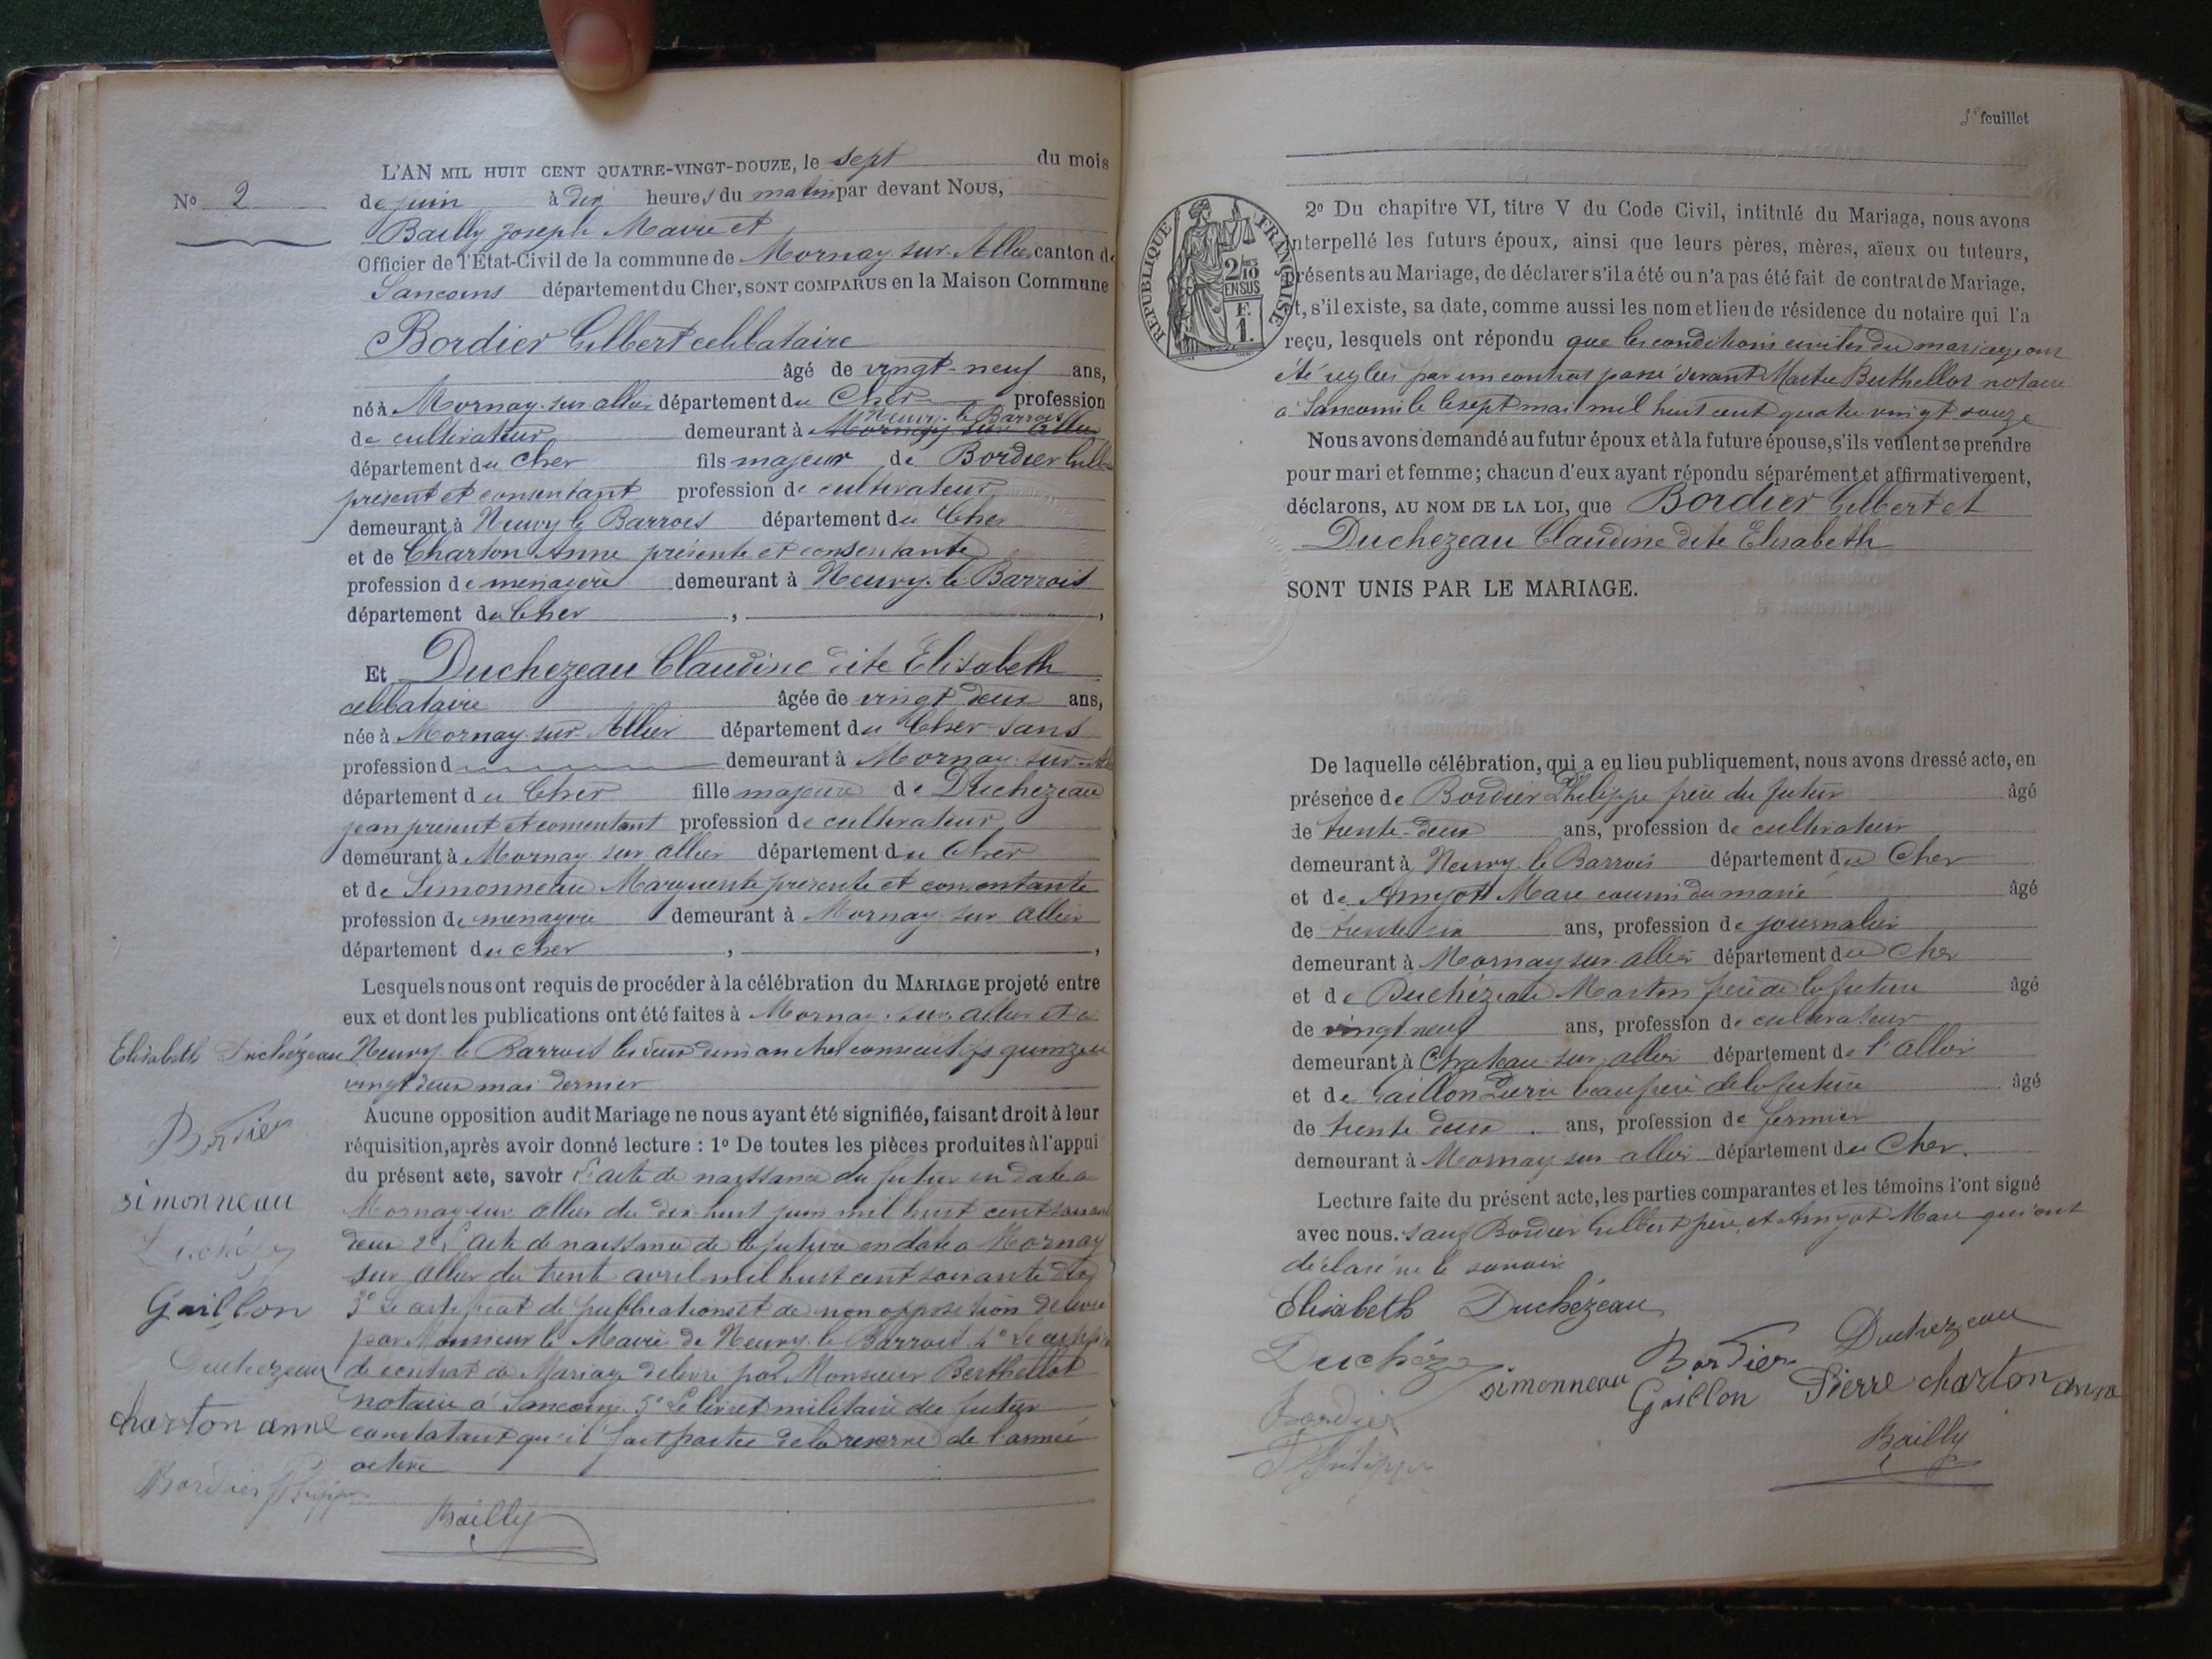 L'AN MIL HUIT CENT QUATRE-VINGT-DOUZE, le sept du mois
No 2
de juin à dix heures du matin par devant Nous,
Bailly Joseph Maire et
Officier de l'État-Civil de la commune de Mornay sur Allier canton de
Sancoins département du Cher, SONT COMPARUS en la Maison Commune
Bordier Gilbert celibataire
âgé de vingt-neuf ans,
né à Mornay-sur-allier département du Cher profession
Neuvy-le Barrois
de cultivateur demeurant à Mornay sur allier
département du Cher fils majeur de Bordier Gilbert
présent et consentant profession de cultivateur
demeurant à Neuvy le Barrois département du Cher
et de Charton Anne présente et consentante
profession de menagère demeurant à Neuvy-le-Barrois
département du Cher
Et Duchezeau Claudine dite Elisabeth
celibataire âgée de vingt deux ans,
née à Mornay-sur-Allier département du Cher sans
profession d demeurant à Mornay-sur-
département du Cher fille majeure de Duchezeau
jean present et consentant profession de cultivateur
demeurant à Mornay sur allier département du Cher
et de Simonneau Marguerite présente et consentante
profession de menagère demeurant à Mornay sur allier
département du cher
Lesquels nous ont requis de procéder à la célébration du MARIAGE projeté entre
eux et dont les publications ont été faites à Mornay-sur allier et a
Neuvy le Barrois les deux dimanches consecutifs quinze et
vingt deux mai dernier
Aucune opposition audit Mariage ne nous ayant été signifiée, faisant droit à leur
réquisition, après avoir donné lecture : 1o De toutes les pièces produites à l'appui
du présent acte, savoir l'acte de naissance du futur en date a
Mornay sur allier du dix huit juin mil huit cent soixante
deux 2o L'acte de naissance de la future en date a Mornay
sur Allier du trente avril mil huit cent soixante dix
3o Le certificat de publications et de non opposition delivré
par Monsieur le Maire de Neuvy-le-Barrois 4o Le certificat
de contrat de Mariage delivré par Monsieur Berthellot
notaire à Sancoins 5o Le livret militaire du futur
constatant qu'il fait partie de la reserve de l'armée
active
Elisabeth Duchézeau
Bordier
simonneau
Duchéze
Gaillon
Duchezeau
charton anne
Bordier
Bailly
5e feuillet
RÉPUBLIQUE FRANÇAISE
2/10 EN SUS
F. 1.
2o Du chapitre VI, titre V du Code Civil, intitulé du Mariage, nous avons
interpellé les futurs époux, ainsi que leurs pères, mères, aïeux ou tuteurs,
présents au Mariage, de déclarer s'il a été ou n'a pas été fait de contrat de Mariage,
et, s'il existe, sa date, comme aussi les nom et lieu de résidence du notaire qui l'a
reçu, lesquels ont répondu que les conditions civiles du mariage ont
été reglées par un contrat passé devant Maitre Berthellot notaire
à Sancoins le sept mai mil huit cent quatre vingt douze
Nous avons demandé au futur époux et à la future épouse, s'ils veulent se prendre
pour mari et femme ; chacun d'eux ayant répondu séparément et affirmativement,
déclarons, AU NOM DE LA LOI, que Bordier Gilbert et
Duchezeau Claudine dite Elisabeth
SONT UNIS PAR LE MARIAGE.
De laquelle célébration, qui a eu lieu publiquement, nous avons dressé acte, en
présence de Bordier Philippe frère du futur âgé
de trente-deux ans, profession de cultivateur
demeurant à Neuvy-le Barrois département du Cher
et de Amyot Marc cousin du marié âgé
de trente six ans, profession de journalier
demeurant à Mornay sur allier département du Cher
et de Duchézeau Martin frère de la future âgé
de vingt neuf ans, profession de cultivateur
demeurant à Chateau-sur-allier département de l'Allier
et de Gaillon Pierre beau frère de la future âgé
de trente deux ans, profession de fermier
demeurant à Mornay sur allier département du Cher.
Lecture faite du présent acte, les parties comparantes et les témoins l'ont signé
avec nous. sauf Bordier Gilbert père et Amyot Marc qui ont
déclaré ne le savoir
Elisabeth Duchézeau
Duchéze
simonneau
Bordier
Duchezeau
Gaillon Pierre charton anna
Bordier
Philippe
Bailly